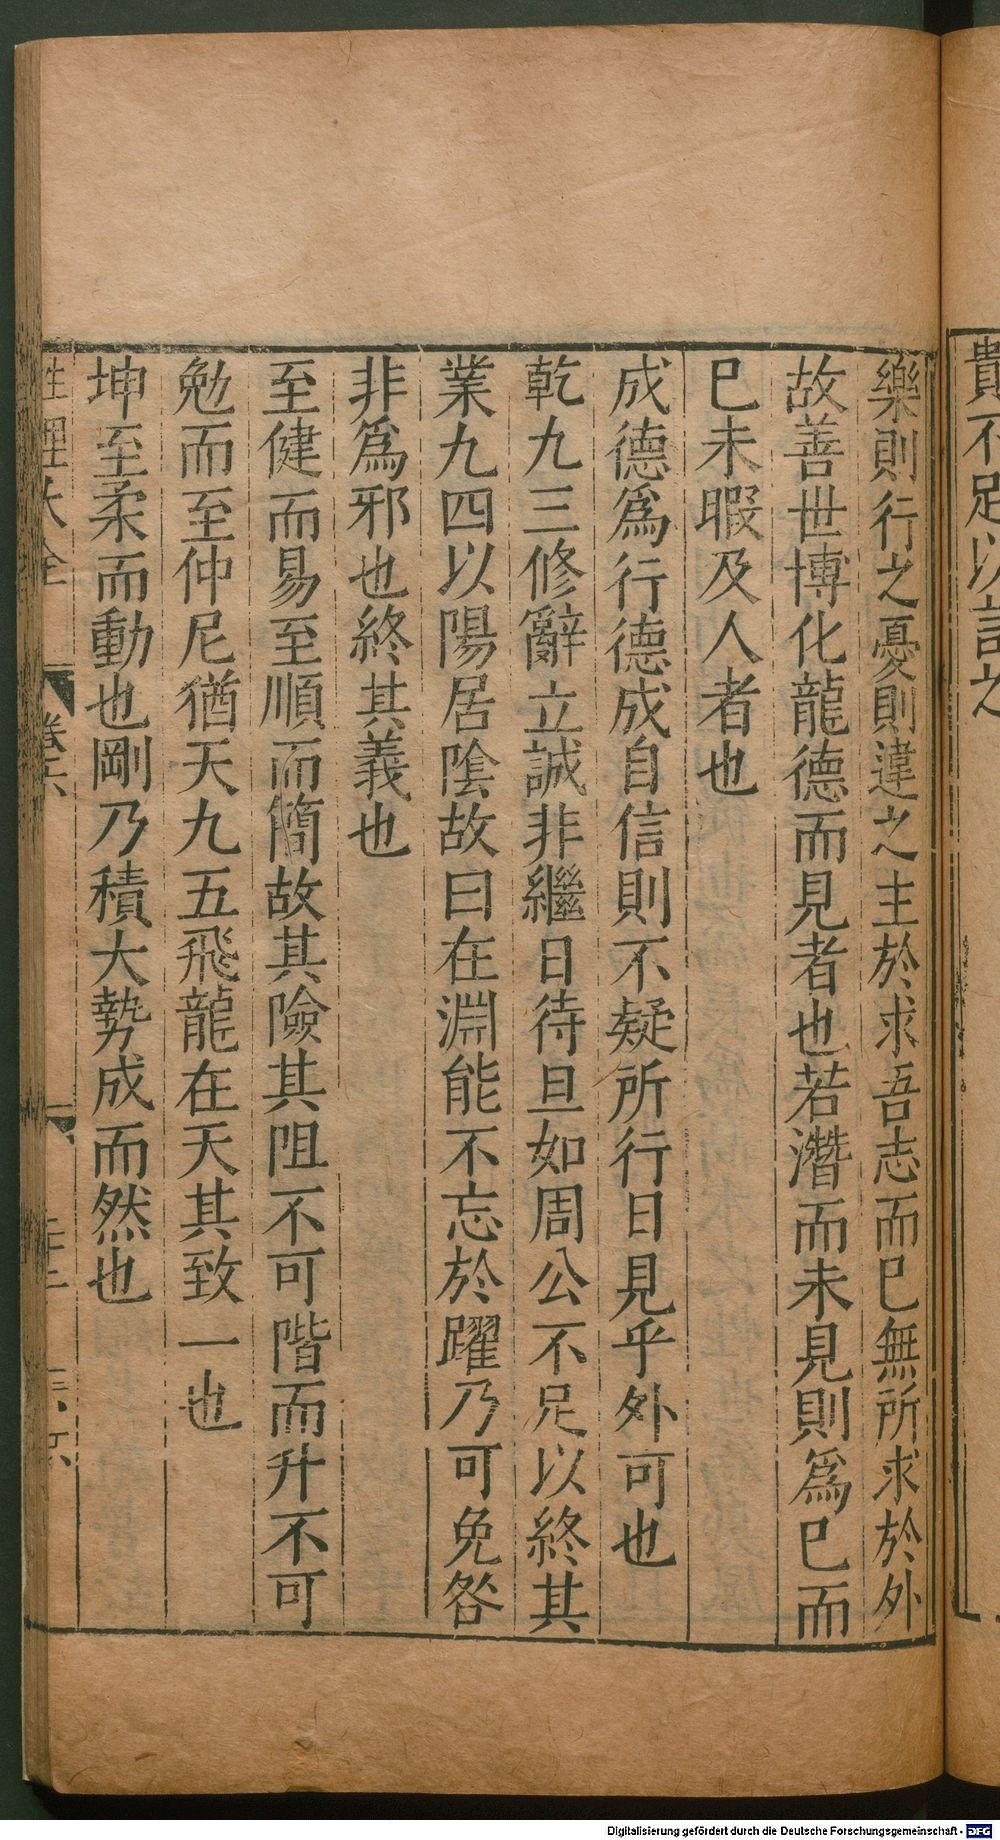 貴不足以言之
樂則行之憂則違之主於求吾志而巳無所求於外
故善世博化龍德而見者也若潛而未見則爲巳而
巳未暇及人者也
成德爲行德成自信則不疑所行日見乎外可也
乾九三修辭立誠非繼日待旦如周公不足以終其
業九四以陽居陰故曰在淵能不忘於躍乃可免咎
非爲邪也終其義也
至健而易至順而簡故其險其阻不可階而升不可
勉而至仲尼猶天九五飛龍在天其致一也
坤至柔而動也剛乃積大勢成而然也
性理大全
卷六
Digitalisierung gefördert durch die Deutsche Forschungsgemeinschaft - DFG